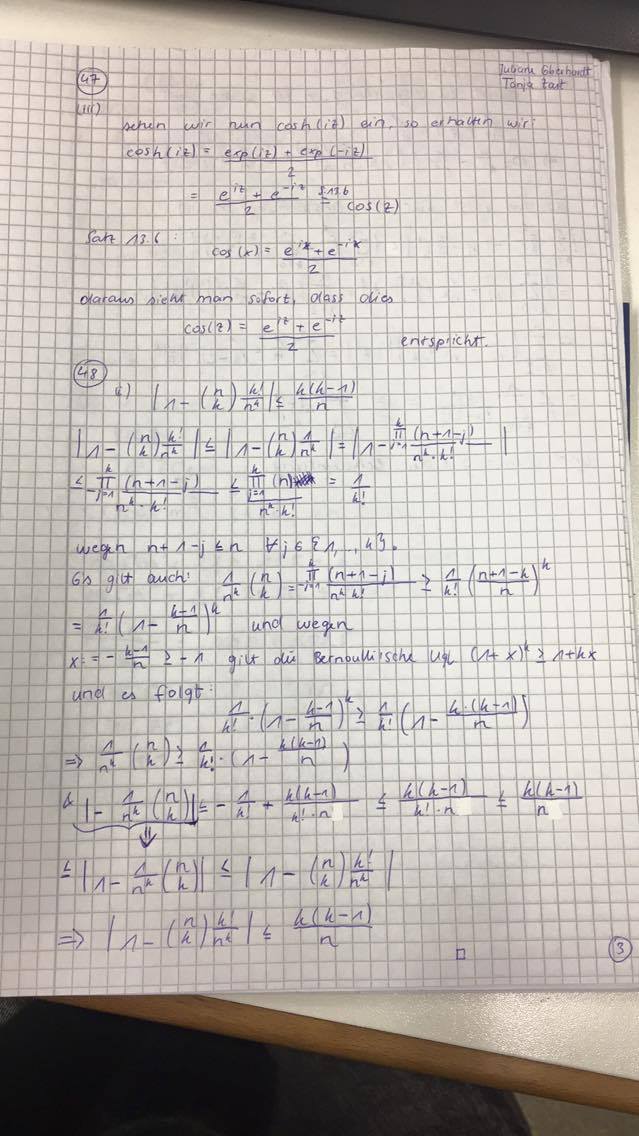 47
Juliane Eberhardt
Tanja Zast
(iii)
sehen wir nun cosh(iz) ein, so erhalten wir:
cosh(iz) = \frac{exp(iz) + exp(-iz)}{2}
= \frac{e^{iz} + e^{-iz}}{2} \overset{S.13.6}{=} cos(z)
Satz 13.6 :
cos(x) = \frac{e^{ix} + e^{-ix}}{2}
daraus sieht man sofort, dass dies
cos(z) = \frac{e^{iz} + e^{-iz}}{2} entspricht.
48
i) |1 - \binom{n}{k} \frac{k!}{n^k}| ≤ \frac{k(k-1)}{n}
|1 - \binom{n}{k} \frac{k!}{n^k}| ≤ |1 - \binom{n}{k} \frac{1}{n^k}| = |1 - \frac{\prod_{j=1}^{k} (n+1-j)}{n^k · k!}|
≤ - \frac{\prod_{j=1}^{k} (n+1-j)}{n^k · k!} ≤ \frac{\prod_{j=1}^{k} (n)}{n^k · k!} = \frac{1}{k!}
wegen n+1-j ≤ n ∀ j ∈ {1, ..., k}.
Es gilt auch: \frac{1}{n^k} \binom{n}{k} = - \frac{\prod_{j=1}^{k} (n+1-j)}{n^k k!} ≥ \frac{1}{k!} (\frac{n+1-k}{n})^k
= \frac{1}{k!} (1 - \frac{k-1}{n})^k und wegen
x := - \frac{k-1}{n} ≥ -1 gilt die Bernoullische Ugl. (1+x)^k ≥ 1+kx
und es folgt:
\frac{1}{k!} · (1 - \frac{k-1}{n})^k ≥ \frac{1}{k!} (1 - \frac{k·(k-1)}{n})
=> \frac{1}{n^k} \binom{n}{k} ≥ \frac{1}{k!} · (1 - \frac{k(k-1)}{n})
& |- \frac{1}{n^k} \binom{n}{k}| ≤ - \frac{1}{k!} + \frac{k(k-1)}{k! · n} ≤ \frac{k(k-1)}{k! · n} ≤ \frac{k(k-1)}{n}
⇓
≤ |1 - \frac{1}{n^k} \binom{n}{k}| ≤ |1 - \binom{n}{k} \frac{k!}{n^k}|
=> |1 - \binom{n}{k} \frac{k!}{n^k}| ≤ \frac{k(k-1)}{n}
□
3